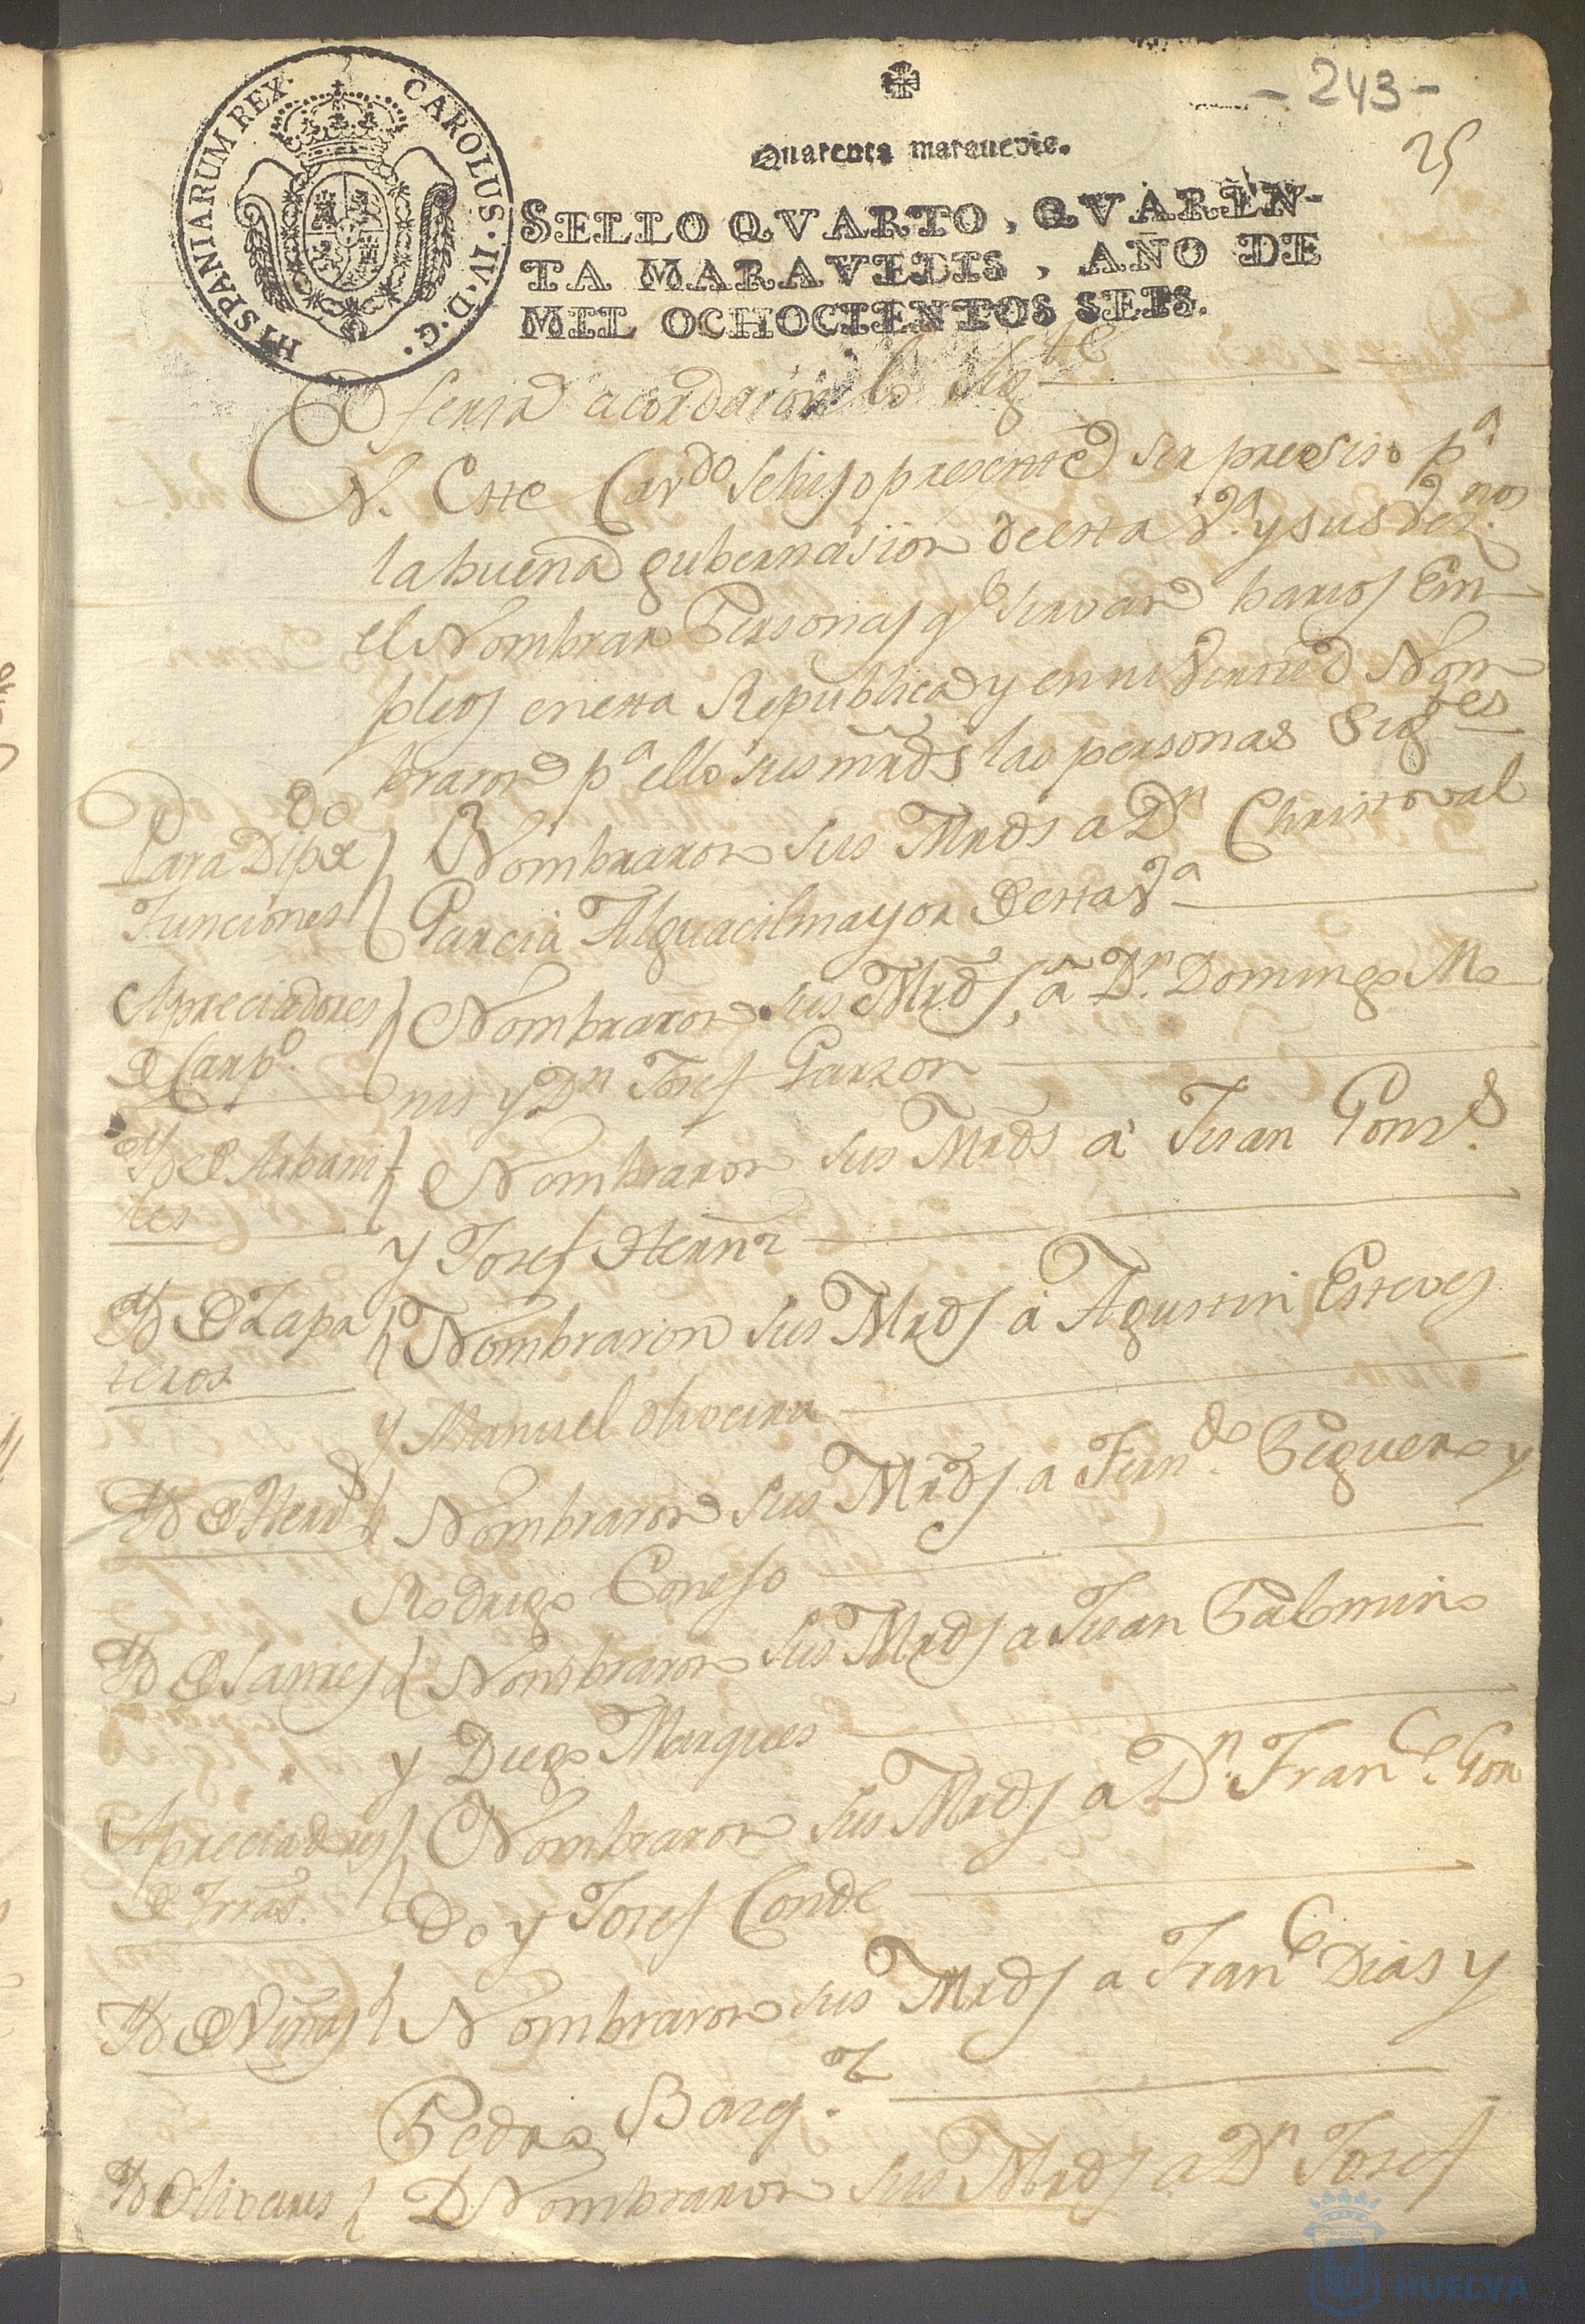 - 243 -
25
HISPANIARUM REX. CAROLUS. IV. D. G.
Quarenta maravedis.
SELLO QVARTO, QVAREN-
TA MARAVEDIS, AÑO DE
MIL OCHOCIENTOS SEIS.
acordaron lo Sigte
En Este Cavdo se hiso presente ser presiso pa
la buena gubernasion de esta Va y sus Veznos
el Nombrar Personas qe sirvan barios Em
pleos en esta Republica y en su Virtud Nom
braron pa ello sus mrds las personas Sigtes
Para Dipdo de
Funciones
Nombraron sus Mrds a Dn Christoval
Garcia Alguacil mayor de esta Va
Apreciadores
de Carpo.
Nombraron sus Mrds, a Dn. Domingo Mo
y Dn Josef Garzon
Yd de Albañi
les
Nombraron sus Mrds a Juan Gonzs.
y Josef Hernz
Yd de Zapa
teros
Nombraron sus Mrds a Agustin Esteves
y Manuel Oliveira
Yd de Herrs
Nombraron sus Mrds a Ferndo. Peguero y
Rodrigo Conejo
Yd de Sastres
Nombraron sus Mrds a Juan Palomino
y Diego Marques
Apreciadores
de Trras.
Nombraron sus Mrds a Dn. Franco. Gon
do y Josef Conde
Yd de Viñas
Nombraron sus Mrds a Franco Dias y
Pedro Barqz.
Yd Olivares
Nombraron sus Mrds a Dn Josef
HUELVA